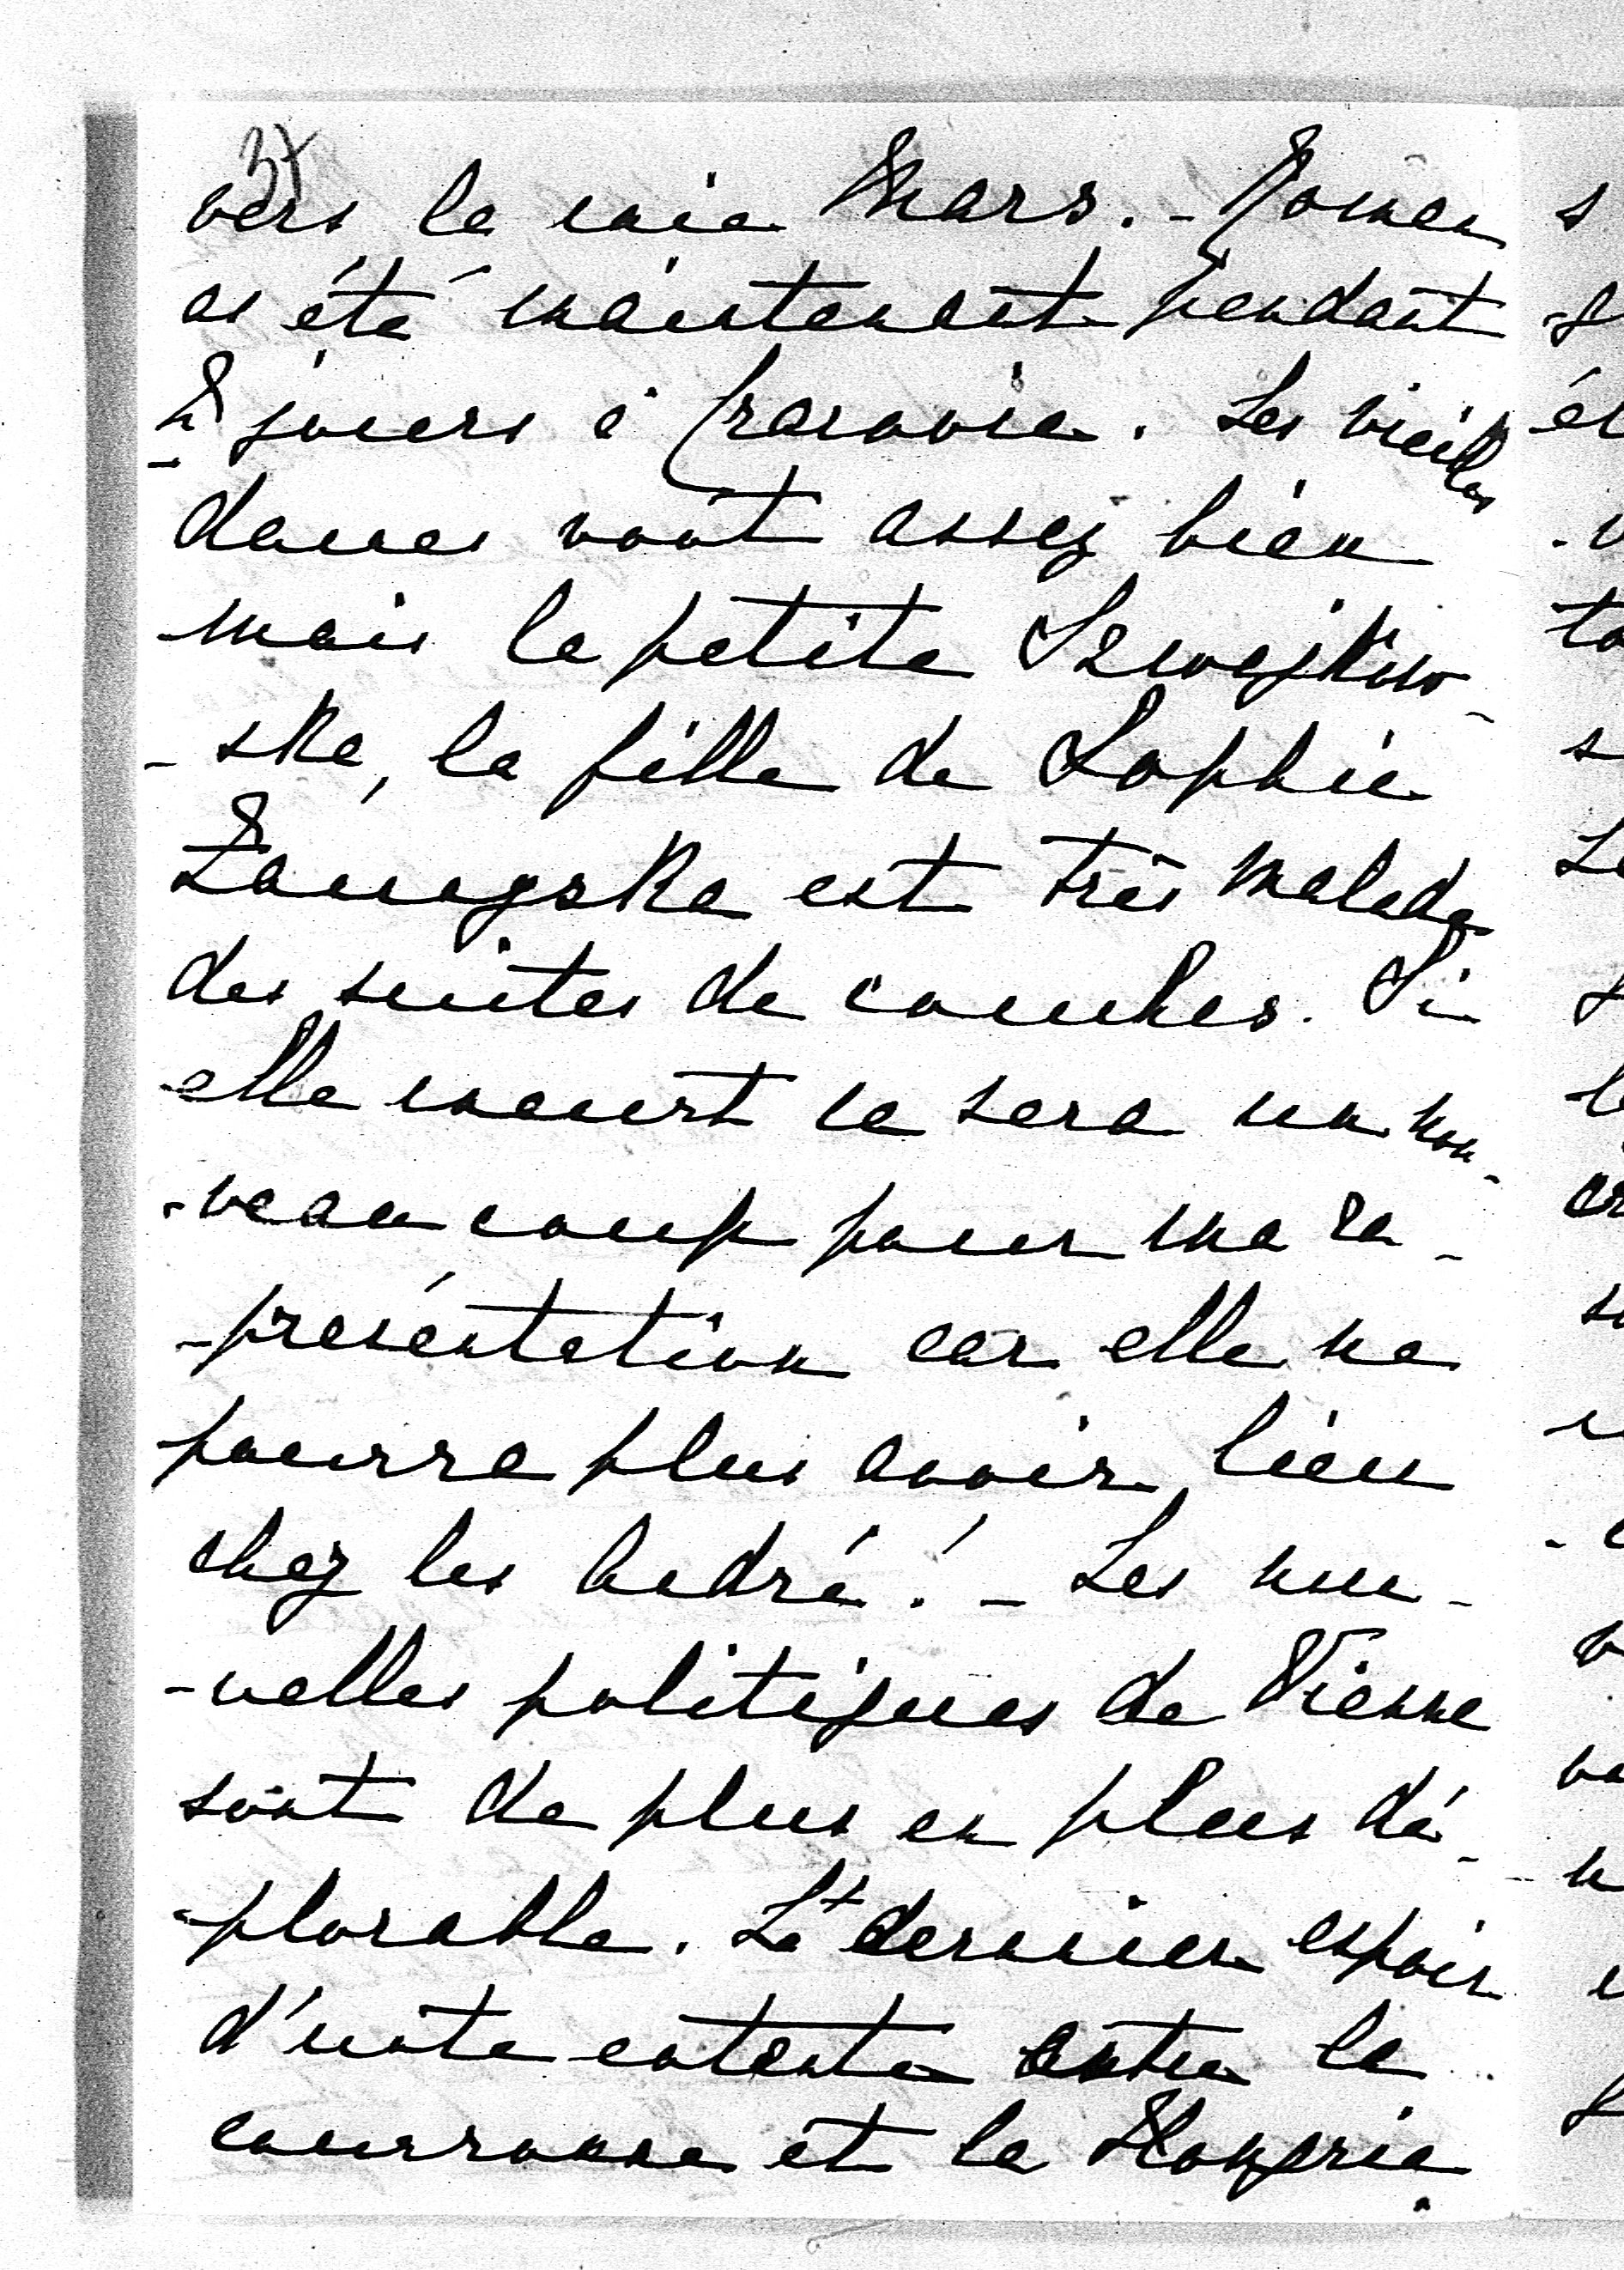 37
vers la mia Mars. - Roman
a été maintenant pendant
2 jours à Cracovie. Les vieilles
dames vont assez bien
mais la petite Szwejkow-
-ska, la fille de Sophie
Zamoyska est très malade
des suites de couches. Si
elle meurt ce sera un nou-
-veau coup pour ma re-
-présentation car elle ne
pourra plus avoir lieu
chez les André! - Les nou-
-velles politiques de Vienne
sont de plus en plus dé-
-plorable. Le dernier espoir
d'une entente entre la
couronne et la Hongrie